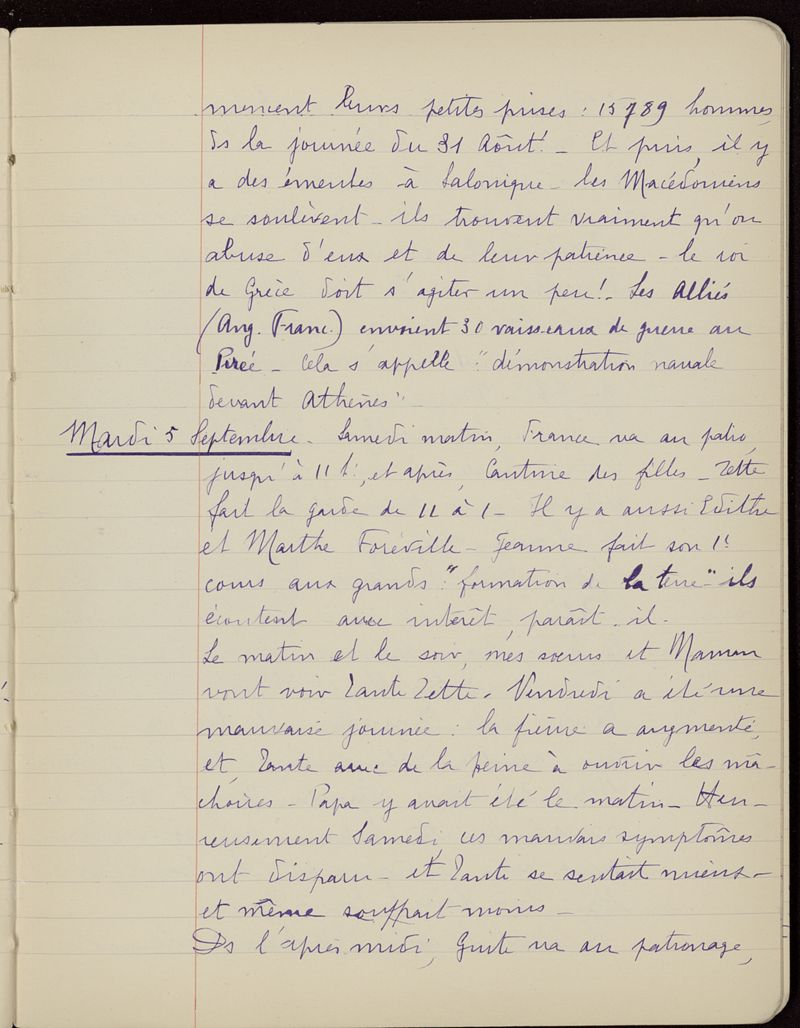 mencent leurs petites prises : 15789 hommes
ds la journée du 31 Août ! - Et puis, il y
a des émeutes à Salonique - les Macédoniens
se soulèvent - ils trouvent vraiment qu'on
abuse d'eux et de leur patience - le roi
de Grèce doit s'agiter un peu ! - Les Alliés
(Ang. Franc.) envoient 30 vaisseaux de guerre au
Pirée - Cela s'appelle "démonstration navale
devant Athènes" -
Mardi 5 Septembre - Samedi matin, France va au patro,
jusqu'à 11 h., et après, Cantine des filles - Zette
fait la garde de 11 à 1 - Il y a aussi Edithe
et Marthe Foréville - Jeanne fait son 1r
cours aux grands : "formation de la terre" - ils
écoutent avec intérêt, paraît-il.
Le matin et le soir, mes soeurs et Maman
vont voir Tante Zette. Vendredi a été une
mauvaise journée : la fièvre a augmenté,
et Tante avec de la peine à ouvrir les mâ-
choires - Papa y avait été le matin - Heu-
reusement Samedi, ces mauvais symptômes
ont disparu - et Tante se sentait mieux -
et même souffrait moins -
Ds l'après midi, Guite va au patronage,